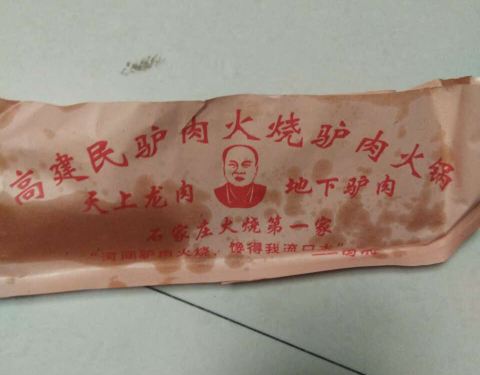 高建民驴肉火烧驴肉火锅
天上龙肉 地下驴肉
石家庄火烧第一家
"河间驴肉火烧，馋得我流口水"